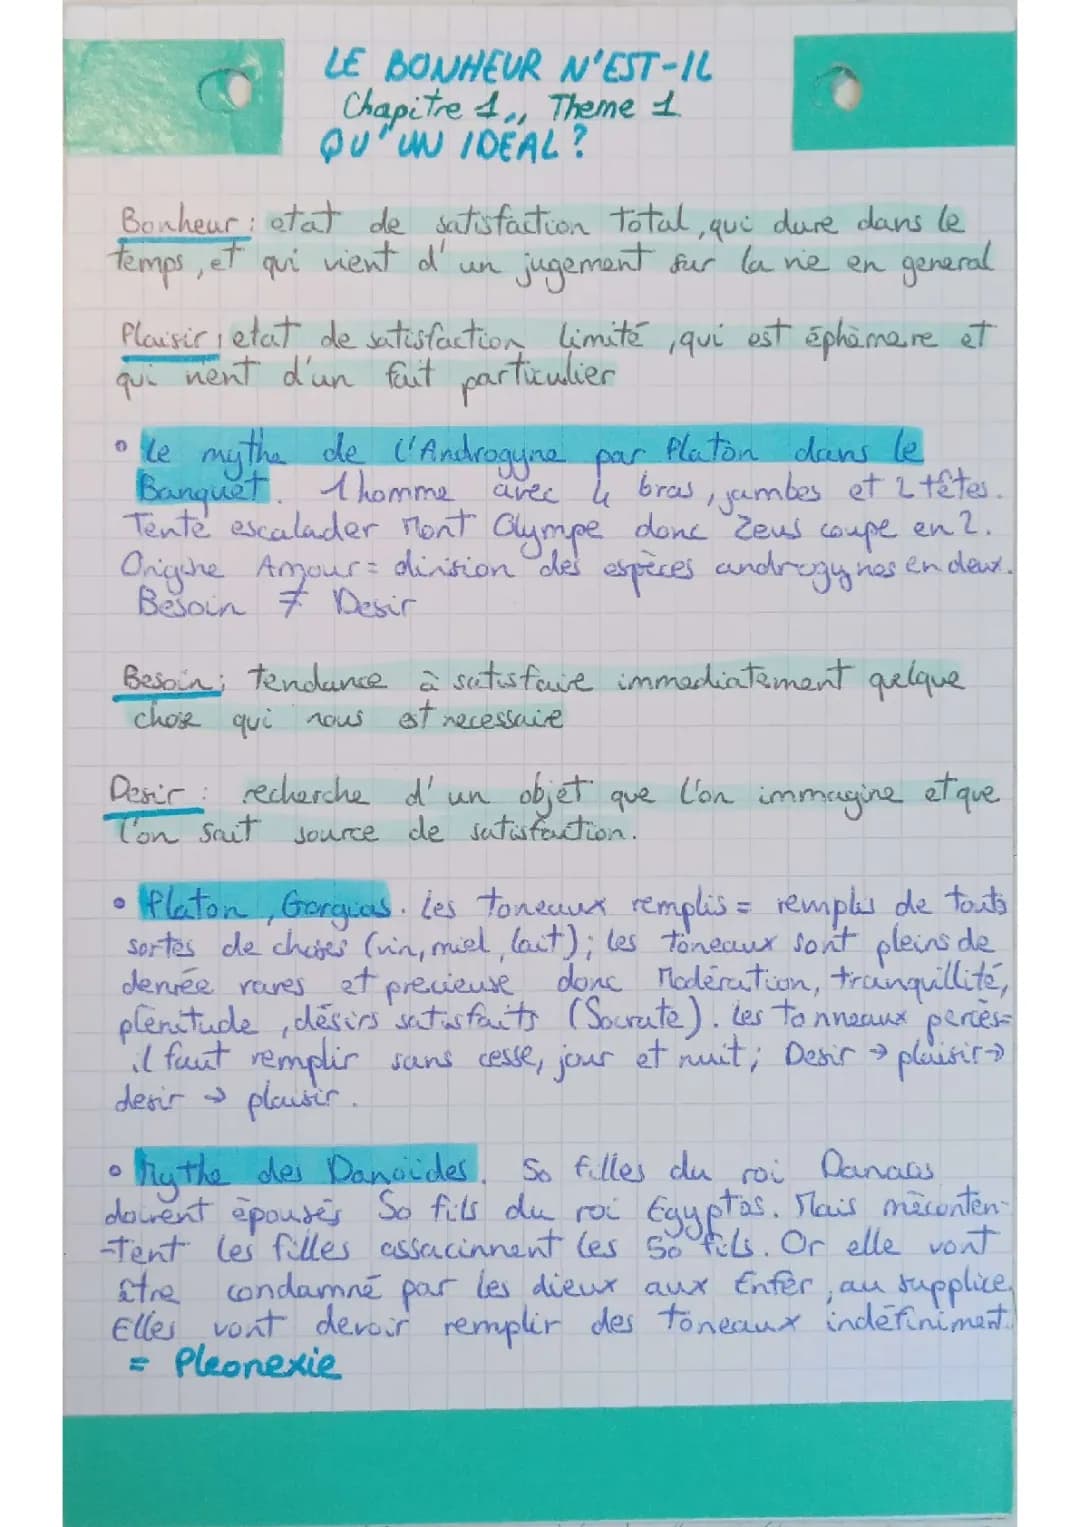 LE BONHEUR N'EST-IL
Chapitre 1,, Theme 1
QU'UN IDEAL ?
Bonheur : etat de satisfaction total, qui dure dans le
temps, et qui vient d'un jugement sur la vie en general
Plaisir : etat de satisfaction limité, qui est éphèmere et
qui vient d'un fait particulier
• Le mythe de l'Androgyne par Platon dans le
Banquet. 1 homme avec 4 bras, jambes et 2 têtes.
Tente escalader Mont Olympe donc Zeus coupe en 2.
Origine Amour = division des espèces androgynes en deux.
Besoin ≠ Desir
Besoin ; tendance à satisfaire immediatement quelque
chose qui nous est necessaire
Desir : recherche d'un objet que l'on immagine et que
l'on sait source de satisfaction.
• Platon, Gorgias. Les toneaux remplis = remplis de touts
sortes de choses (vin, miel, lait) ; les toneaux sont pleins de
denrée rares et precieuse donc Modération, tranquillité,
plénitude, désirs satisfaits (Socrate). Les tonneaux percès=
il faut remplir sans cesse, jour et nuit ; Desir → plaisir →
desir → plaisir.
• Mythe des Danaïdes. 50 filles du roi Danaos
doivent èpousés 50 fils du roi Egyptos. Mais mèconten-
-tent les filles assacinnent les 50 fils. Or elle vont
être condamné par les dieux aux Enfer, au supplice.
Elles vont devoir remplir des toneaux indéfiniment.
= Pleonexie